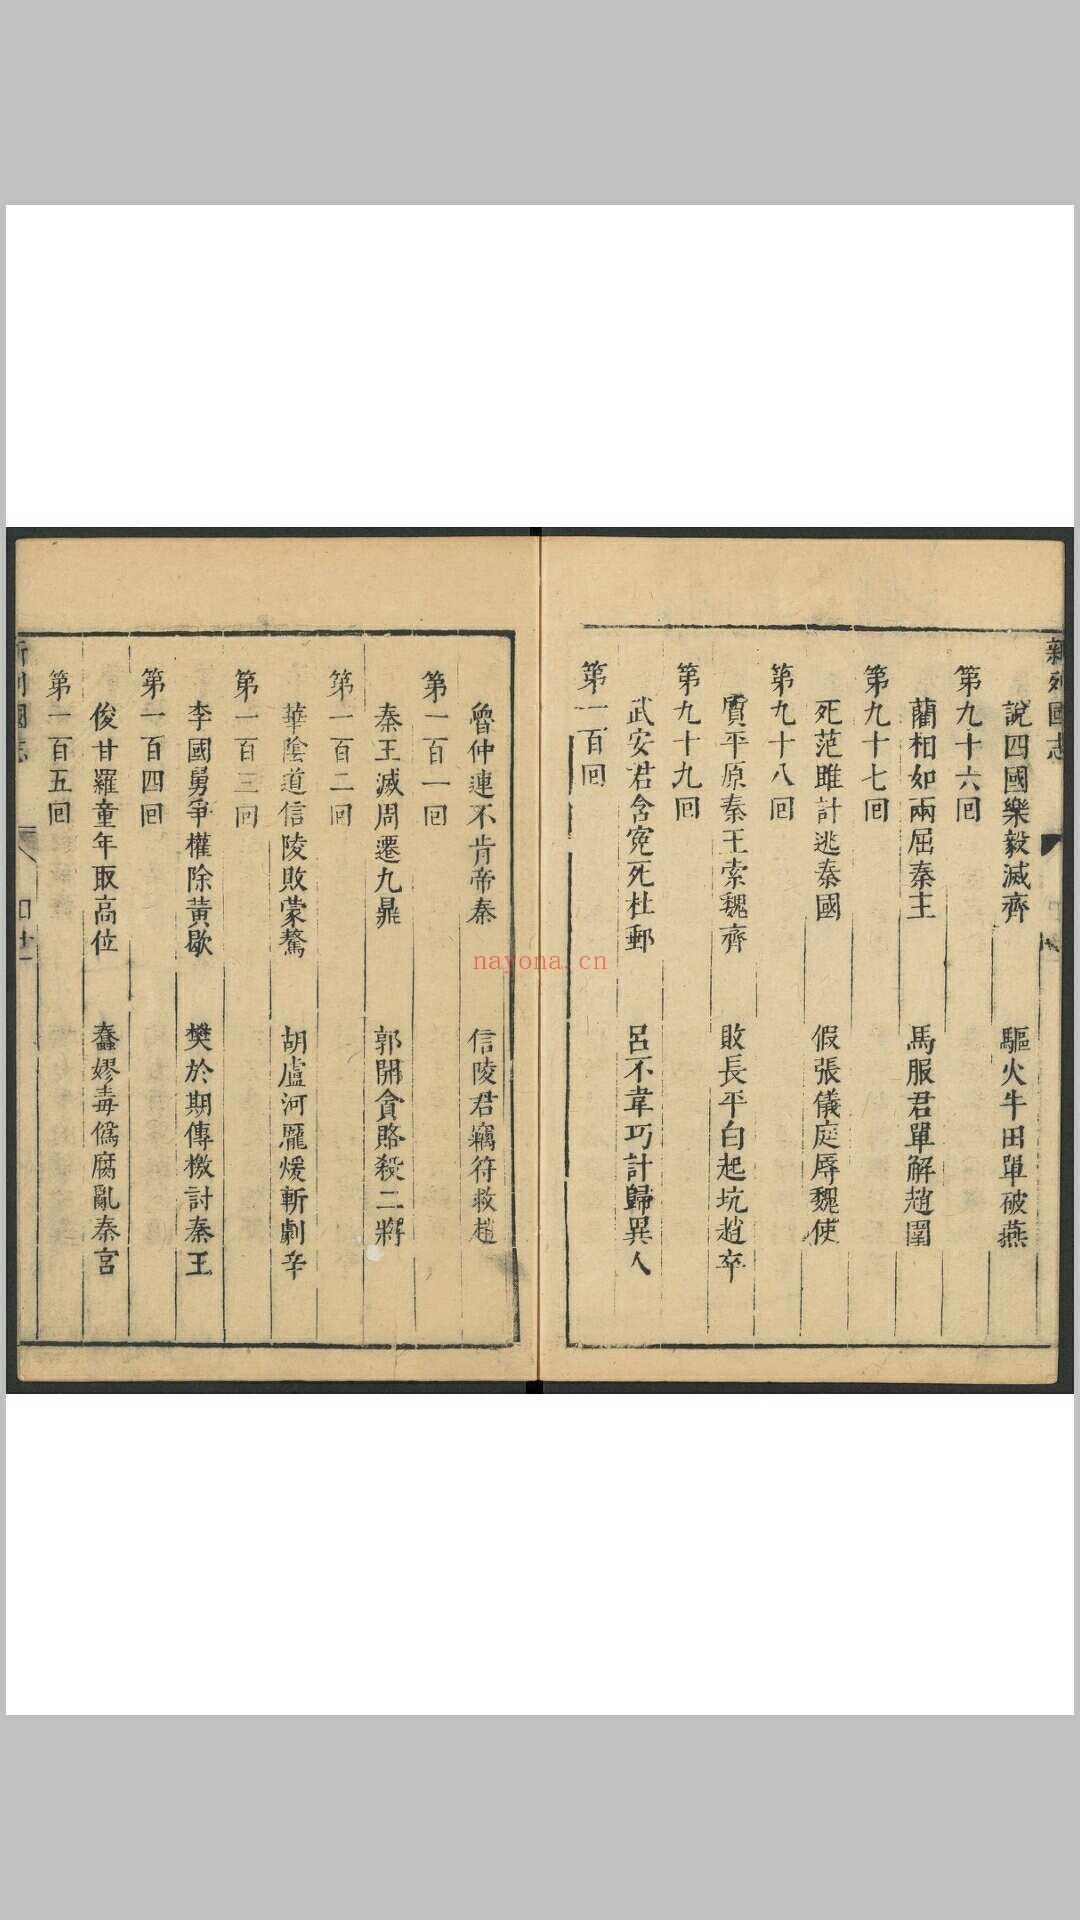 新列國志
說四國樂毅滅齊　驅火牛田單破燕
第九十六回
藺相如兩屈秦王　馬服君單解趙圍
第九十七回
死范雎計逃秦國　假張儀庭辱魏使
第九十八回
質平原秦王索魏齊　敗長平白起坑趙卒
第九十九回
武安君含冤死杜郵　呂不韋巧計歸異人
第一百回
魯仲連不肯帝秦　信陵君竊符救趙
第一百一回
秦王滅周遷九鼎　郭開貪賂殺二將
第一百二回
華陰道信陵敗蒙驁　胡盧河龐煖斬劇辛
第一百三回
李國舅爭權除黃歇　樊於期傳檄討秦王
第一百四回
俊甘羅童年取高位　蠢嫪毐僞腐亂秦宮
第一百五回
nayona.cn